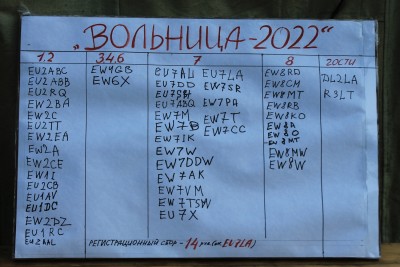 „ВОЛЬНИЦА-2022“
1.2
EU2ABC
EU2ABB
EU2RQ
EW2BA
EW2C
EU2TT
EW2EA
EW2A
EW2CE
EW1I
EU2CB
EU1AV
EU1DC
EW2DZ
EU1RC
EU2AAL
3.4.6
EW4GB
EW6X
7
EU7AU EU7LA
EU7DD EW7SR
EU7SBH
EU7ABQ EW7PA
EW7M EW7T
EW7B EW7CC
EW7IK
EW7W
EW7DDW
EW7AK
EW7VM
EW7TSM
EU7X
8
EW8RD
EW8CM
EW8MT
EW8RB
EW8KO
EW8A
EW8O
EW8MW
EW8W
ГОСТИ
DL2LA
R3LT
РЕГИСТРАЦИОННЫЙ СБОР - 14